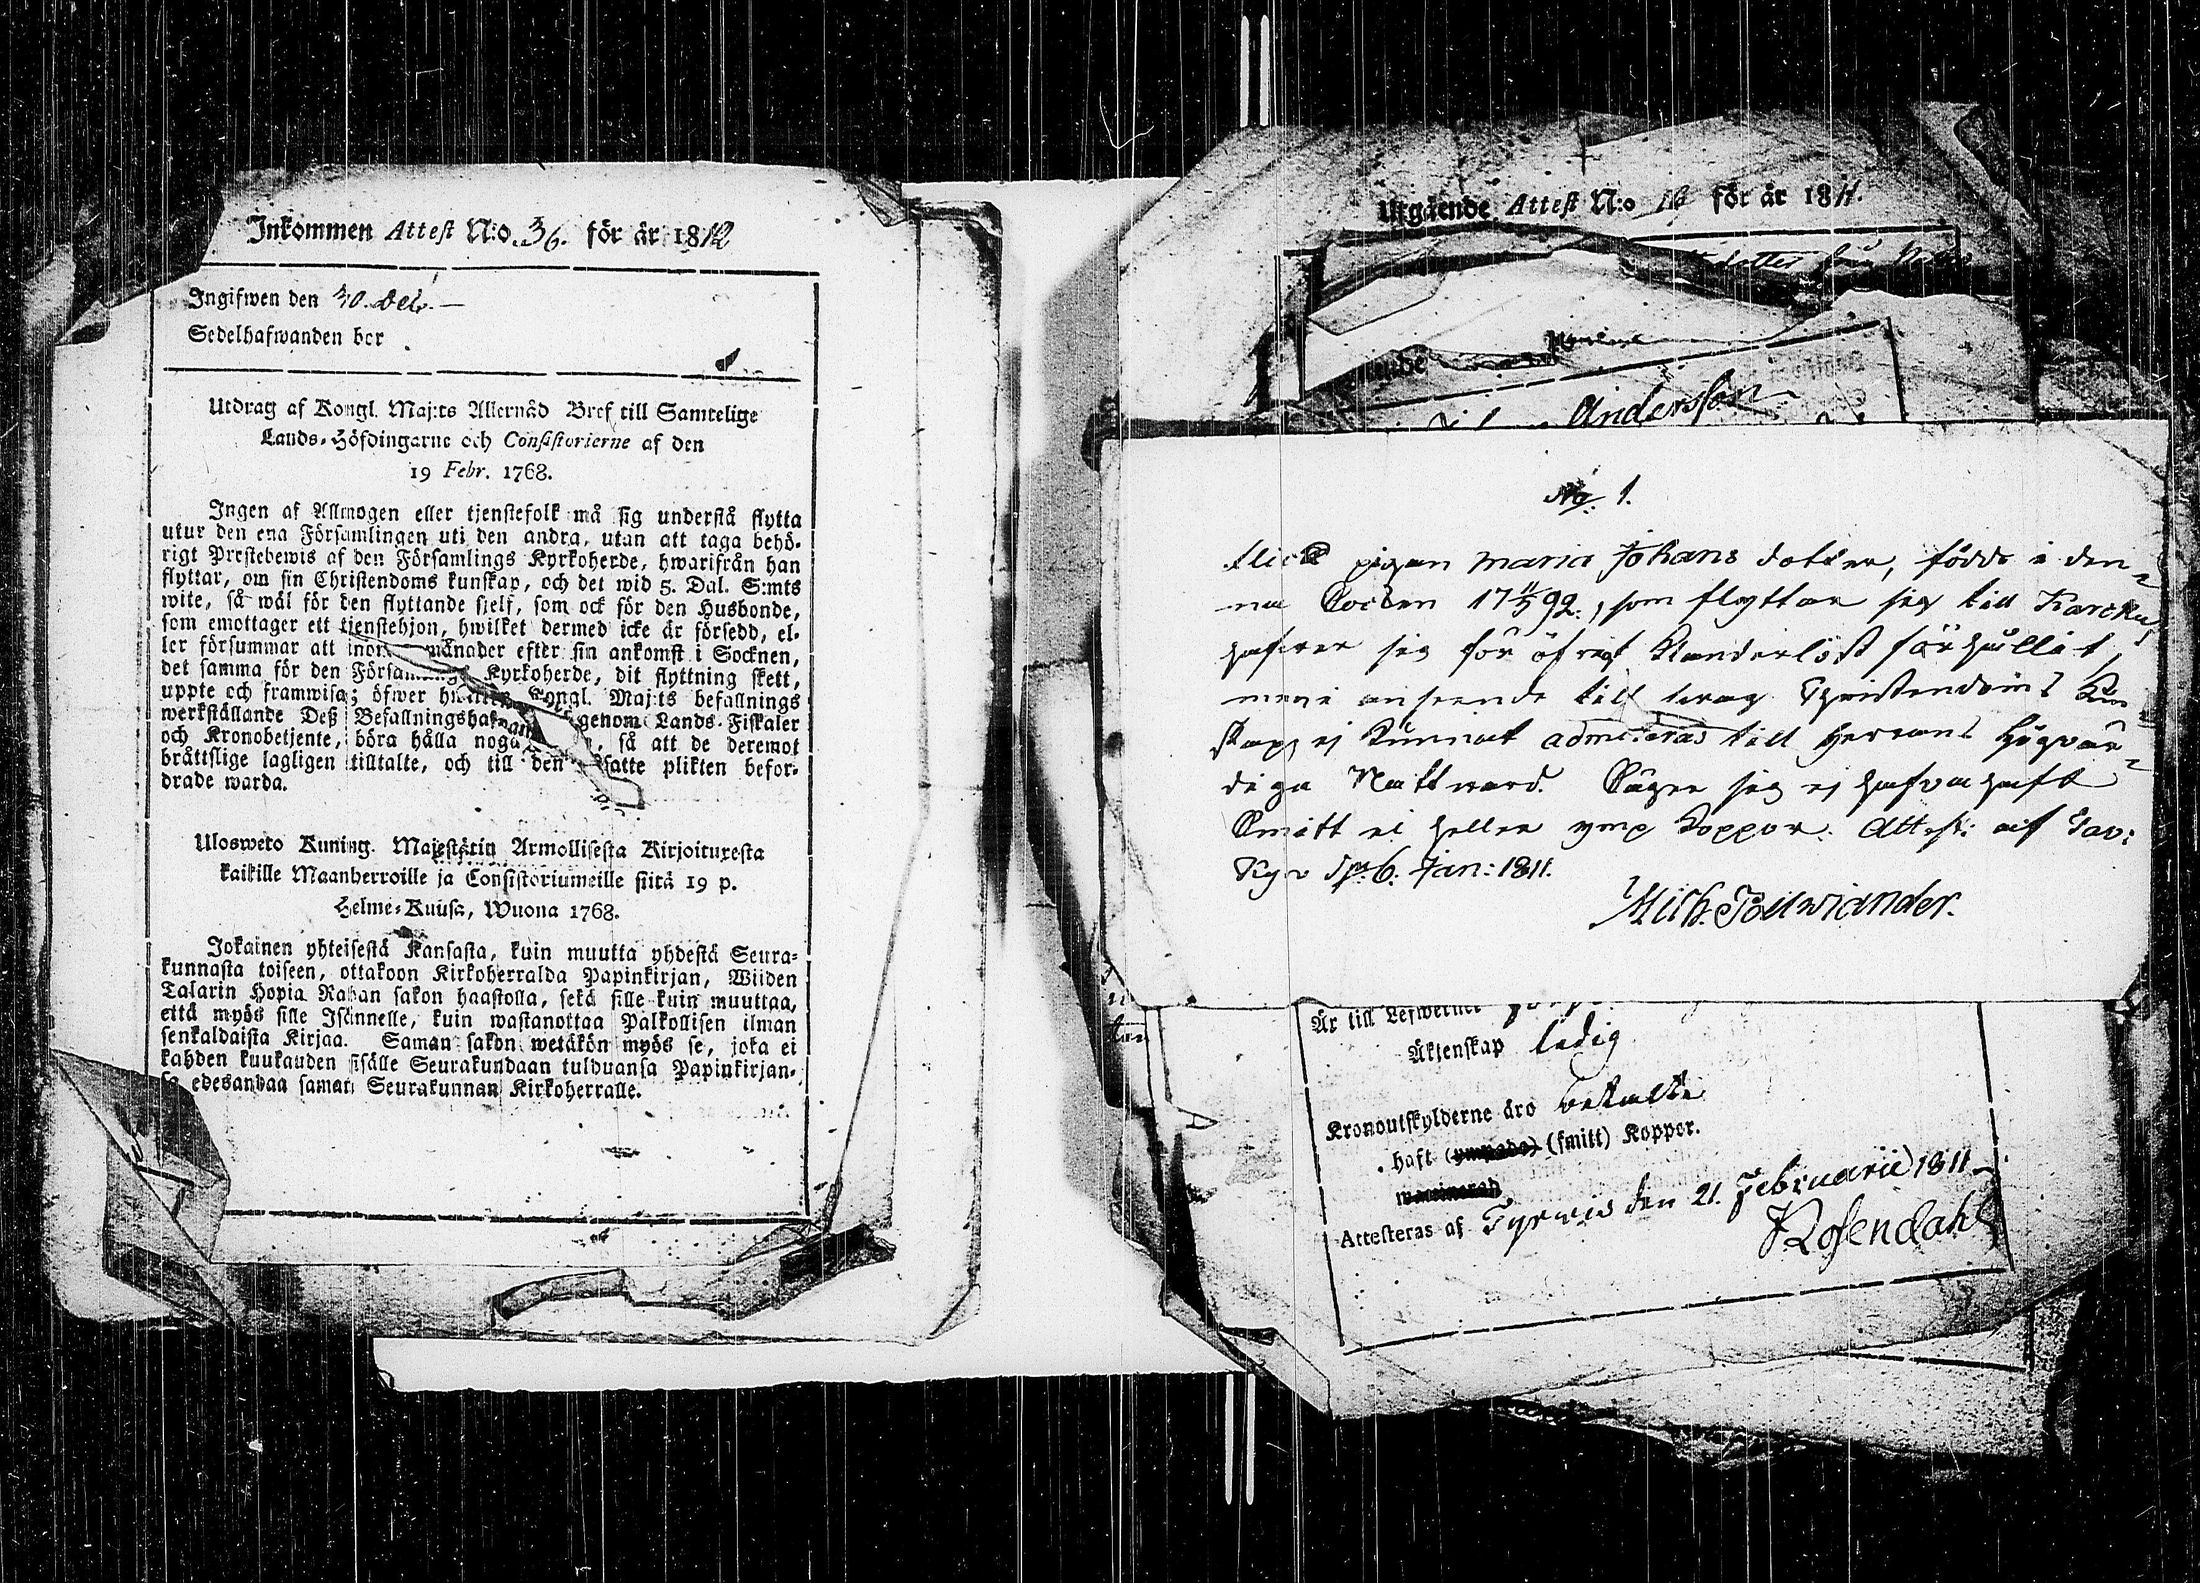 Inkommen Attest N:o 36. för år 1812
Ingifwen den 30. Dec.
Sedelhafwanden bor
Utdrag af Kongl. Maj:ts Allernåd Bref till Samtelige
Lands-Höfdingarne och Consistorierne af den
19 Febr. 1768.
Ingen af Allmogen eller tjenstefolk må sig understå flytta
utur den ena Församlingen uti den andra, utan att taga behö-
rigt Prestebewis af den Församlings Kyrkoherde, hwarifrån han
flyttar, om sin Christendoms kunskap, och det wid 5. Dal. S:mts
wite, så wäl för den flyttande sjelf, som ock för den Husbonde,
som emottager ett tjenstehjon, hwilket dermed icke är försedd, el-
ler försummar att inom månader efter sin ankomst i Socknen,
det samma för den Församlings Kyrkoherde, dit flyttning skett,
uppte och framwisa; öfwer Kongl. Maj:ts befallnings
werkställande Deß Befallningshafwande genom Lands-Fiskaler
och Kronobetjente, böra hålla noga , så att de deremot
bråttslige lagligen tilltalte, och till den satte plikten befor-
drade warda.
Ulosweto Kuning. Majestätin Armollisesta Kirjoituxesta
kaikille Maanherroille ja Consistoriumeille siitä 19 p.
Helme-Kuusa, Wuona 1768.
Jokainen yhteisestä Kansasta, kuin muutta yhdestä Seura-
kunnasta toiseen, ottakoon Kirkoherralda Papinkirjan, Wiiden
Talarin Hopia Rahan sakon haastolla, sekä sille kuin muuttaa,
että myös sille Isännelle, kuin wastanottaa Palkollisen ilman
senkaldaista Kirjaa. Saman sakon wetäkön myös se, joka ei
kahden kuukauden sisälle Seurakundaan tulduansa Papinkirjan-
sa edesandaa saman Seurakunnan Kirkoherralle.
Utgående Attest N:o för år 1811.
dotter
Andersson
No. 1.
pigan Maria Johans dotter, född i den-
na Socken 17 11/3 92., som flyttar sig till Karcku,
hafwer sig för öfrigt klanderlöst förhållit,
men i anseende till swag Christendoms Kun-
skap, ej kunnat admitteras till Herrans Högwär-
diga Nattward. Säger sig ej hafva haft
Smitt ei heller ymp koppor. Attest: af Tav:
Kyro d. 6. Jan: 1811.
Mich. Pollviander.
Är till Lefwernet
Äktenskap ledig
Kronoutskylderne äro betalte
haft (ympade) (smitt) Koppor.
Attesteras af Tyrwis den 21. Februarii 1811
Rosendahl